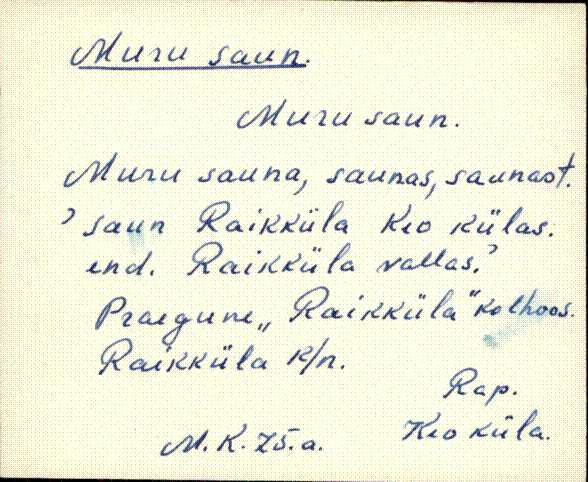 Muru saun.
Muru saun.
Muru sauna, saunas, saunast.
’saun Raikküla Keo külas.
end. Raikküla vallas.’
Praegune „Raikküla" kolhoos.
Raikküla k/n.
Rap.
M.K. 75.a. Keo küla.